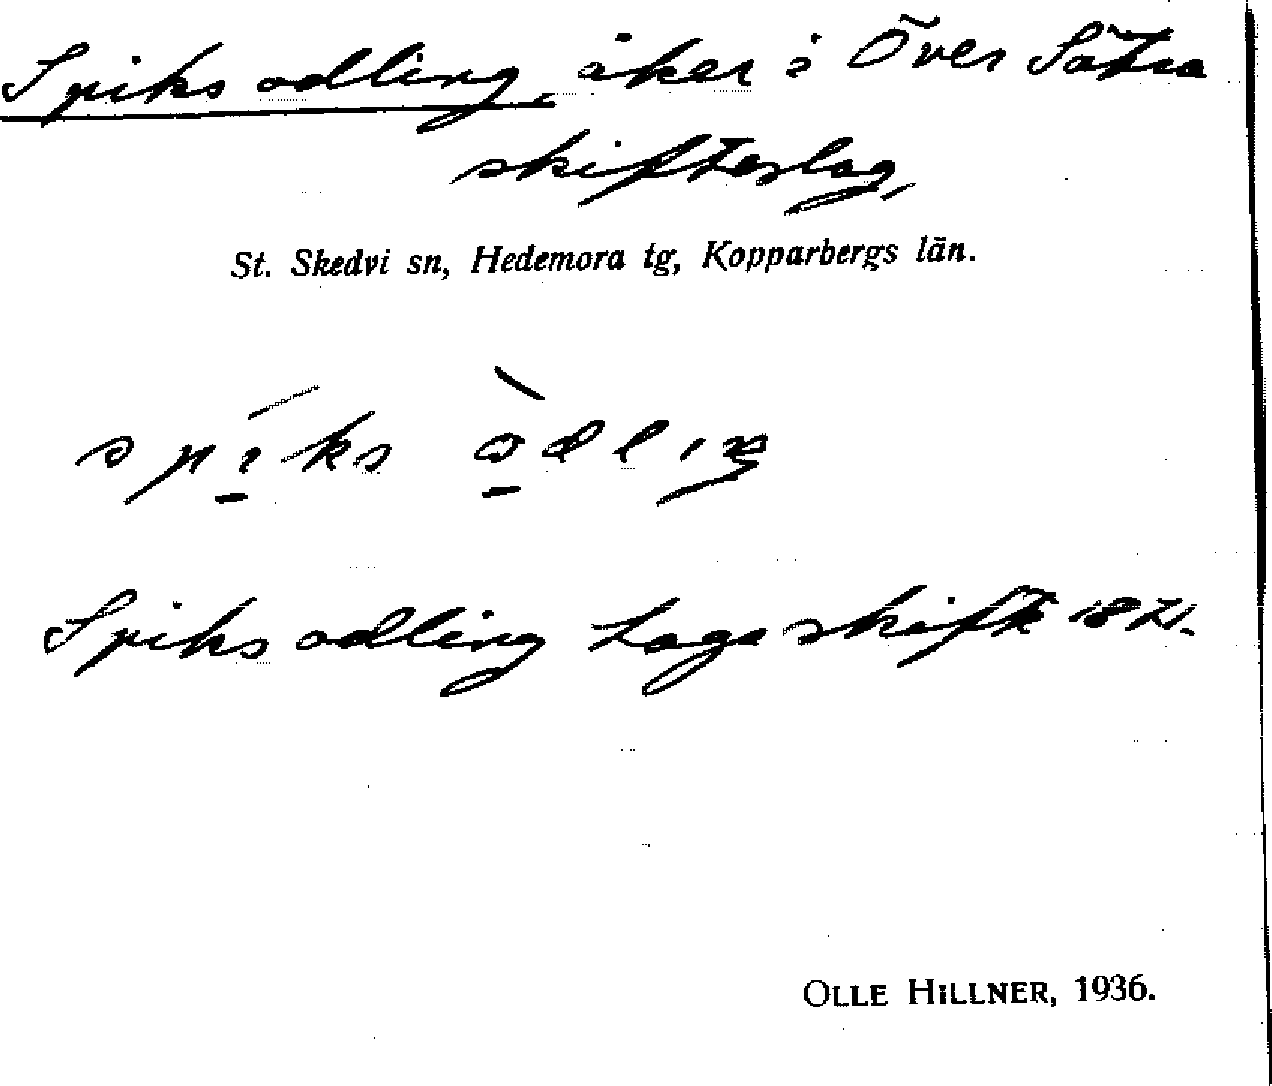 Spiks odling, åker i Över Sätra
skifteslag,
St. Skedvi sn, Hedemora tg, Kopparbergs län.
spi̲ks ò̲dlıŋ
Spiks odling Laga skifte
OLLE HILLNER, 1936.